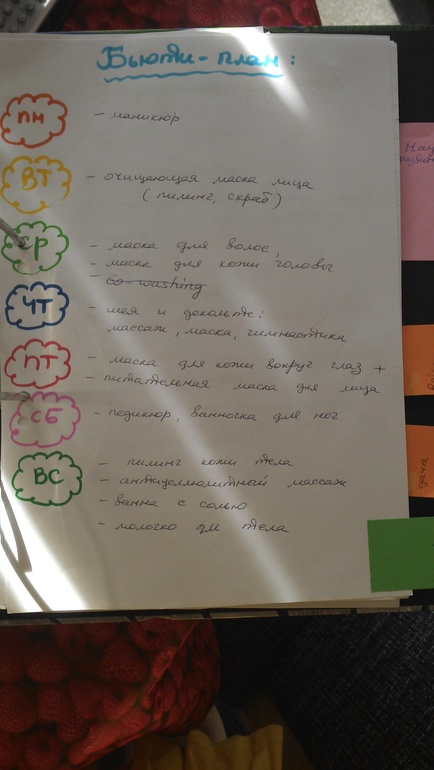 Бьюти-план:
ПН
- маникюр
ВТ
- очищающая маска лица
(пилинг, скраб)
СР
- маска для волос,
- маска для кожи головы
- co-washing
ЧТ
- шея и декольте:
массаж, маска, гимнастика
ПТ
- маска для кожи вокруг глаз +
- питательная маска для лица
СБ
- педикюр, ванночка для ног
ВС
- пилинг кожи тела
- антицеллюлитный массаж
- ванна с солью
- молочко для тела
дача